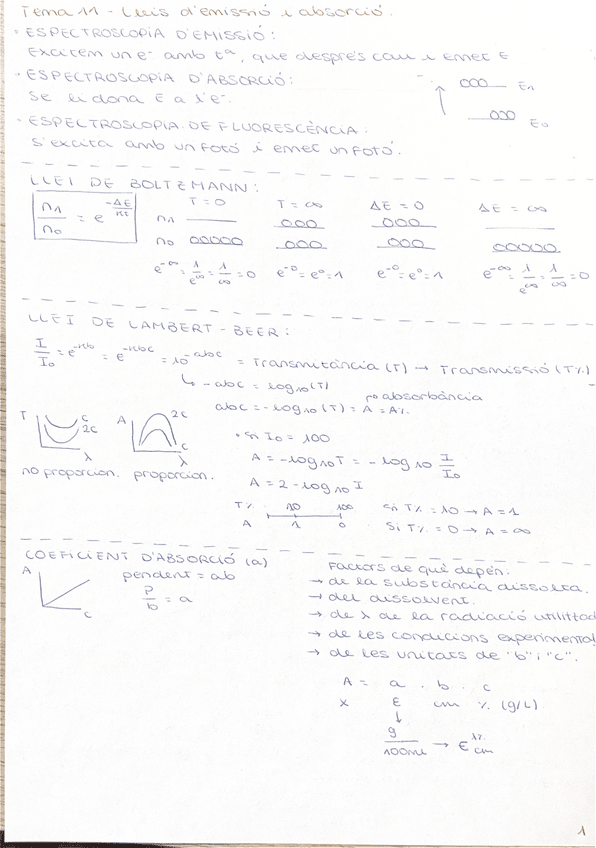 Tema 11 - Lleis d'emissió i absorció.
· ESPECTROSCOPIA D'EMISSIÓ:
Excitem un e⁻ amb tª, que després cau i emet E
· ESPECTROSCOPIA D'ABSORCIÓ:
000 E₁
Se li dona E a l'e⁻.
000 E₀
· ESPECTROSCOPIA DE FLUORESCÈNCIA.
S'excita amb un fotó i emet un fotó.
LLEI DE BOLTZMANN:
n₁/n₀ = e
T = 0 T = ∞ ΔE = 0 ΔE = ∞
n₁ 000 000
n₀ 00000 000 000 00000
e^-∞ = 1/e^∞ = 1/∞ = 0 e^-0 = e^0 = 1 e^-0 = e^0 = 1 e^-∞ = 1/e^∞ = 1/∞ = 0
LLEI DE LAMBERT-BEER:
I/I₀ = = = 10^-abc = Transmitància (T) → Transmissió (T%)
↳ -abc = log₁₀ (T)
absorbància
abc = -log₁₀ (T) = A = A%
T c 2c λ A 2c c λ
no proporcion. proporcion.
• Si I₀ = 100
A = -log₁₀ T = -log₁₀ I/I₀
A = 2 - log₁₀ I
T% 10 100
A 1 0
Si T% = 10 → A = 1
Si T% = 0 → A = ∞
COEFICIENT D'ABSORCIÓ (a)
A c
pendent = ab
p/b = a
Factors de què depèn.
→ de la substància dissolta.
→ del dissolvent.
→ de λ de la radiació utilitzad
→ de les condicions experimental
→ de les unitats de "b" i "c".
A = a . b . c
x ε cm % (g/L)
↓
g/100ml → E 1% cm
1